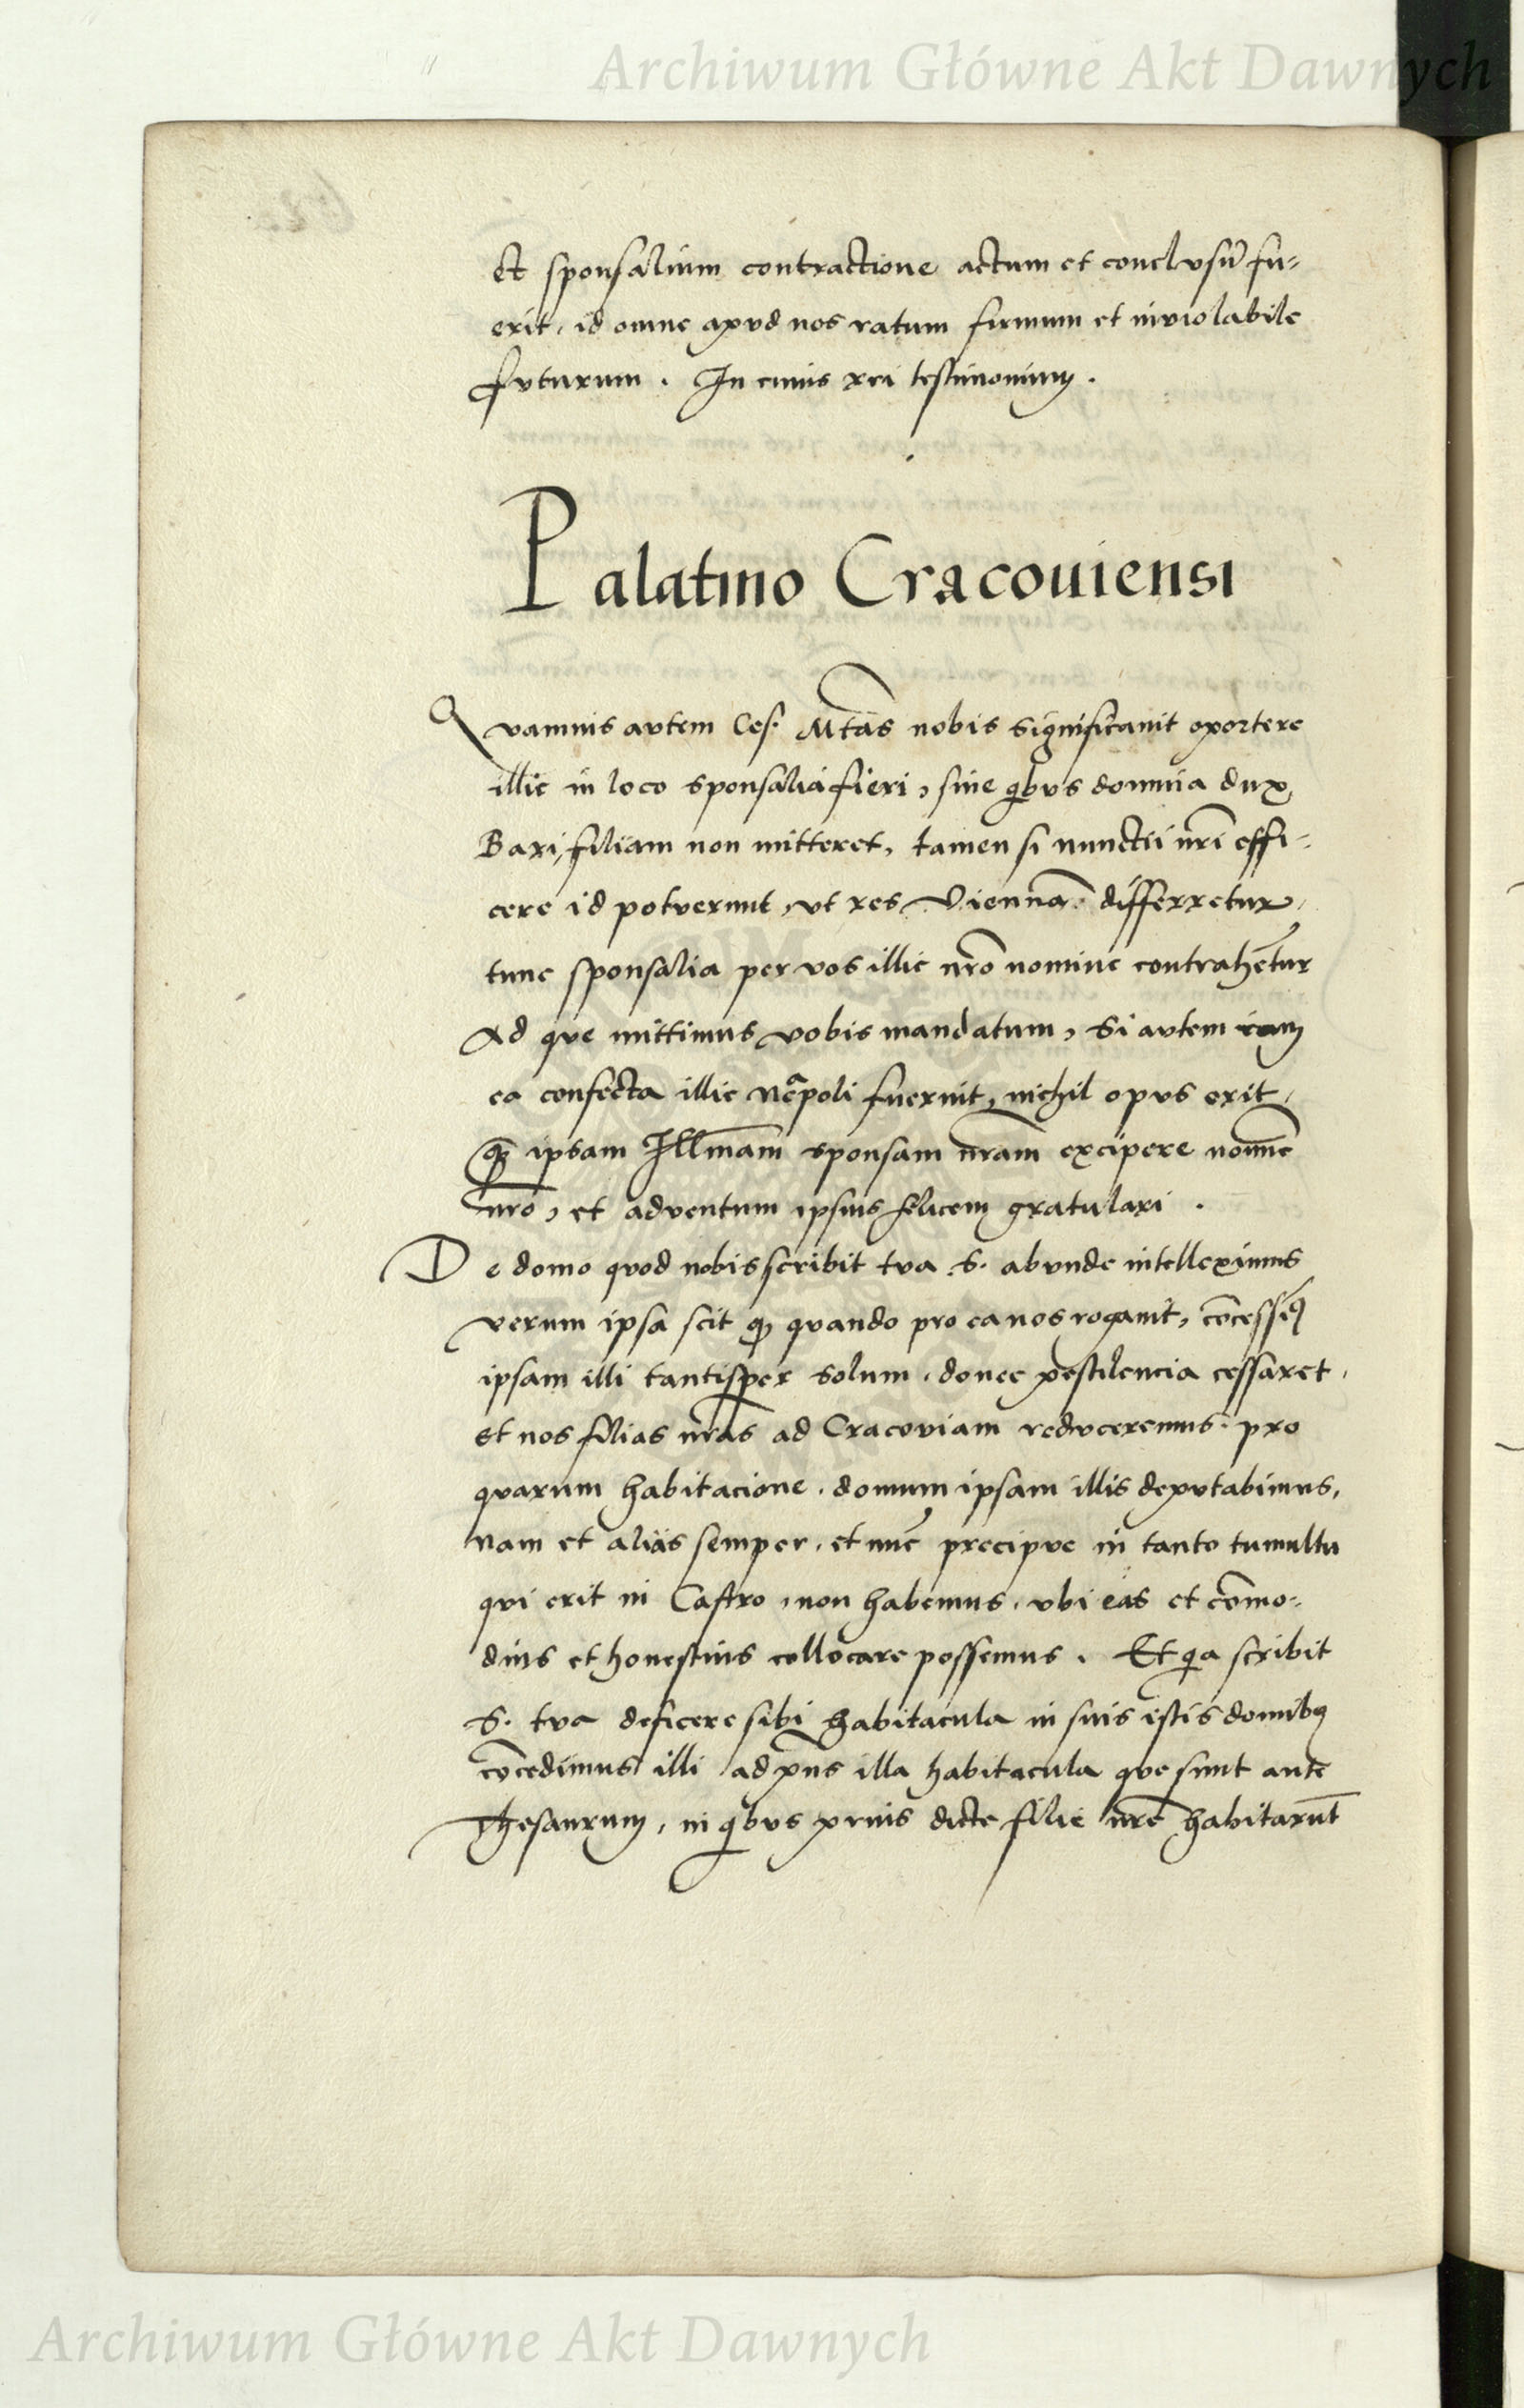 Archiwum Główne Akt Dawnych
Et sponsalium contractione actum et conclusū fu-
erit, id omne apud nos ratum firmum et inviolabile
futurum. In cuius rei testimonium.
Palatino Cracouiensi
Quamuis autem Ces. Mtās nobis significauit oportere
illic in loco sponsalia fieri, sine qibus domina dux
Bari, filiam non mitteret, tamen si nunctii nr̄i effi-
cere id potuerunt, ut res Viennā differretur,
tunc sponsalia per vos illic nrō nomine contrahētur
Ad que mittimus vobis mandatum, Si autem iam
ea confecta illic Neapoli fuerint, nichil opus erit,
qȝ ipsam Illmam sponsam nr̄am excipere nomīe
nrō, et adventum ipsius felicem gratulari.
De domo quod nobis scribit tua S. abunde intelleximus
verum ipsa scit qȝ quando pro ea nos rogauit, cōcessimꝰ
ipsam illi tantisper solum, donec pestilencia cessaret,
et nos filias nrās ad Cracoviam reduceremus, pro
quarum habitacione, domum ipsam illis deputabimus,
nam et aliās semper, et nūc precipue in tanto tumultu
qui erit in Castro, non habemus, ubi eas et cōmo-
dius et honestius collocare possemus. Et qia scribit
S. tua deficere sibi habitacula in suis istis domibꝰ
cōcedimus illi ad pn̄s illa habitacula que sunt ante
Thesaurum, in qibus prius dicte filie nrē habitarūt
Archiwum Główne Akt Dawnych